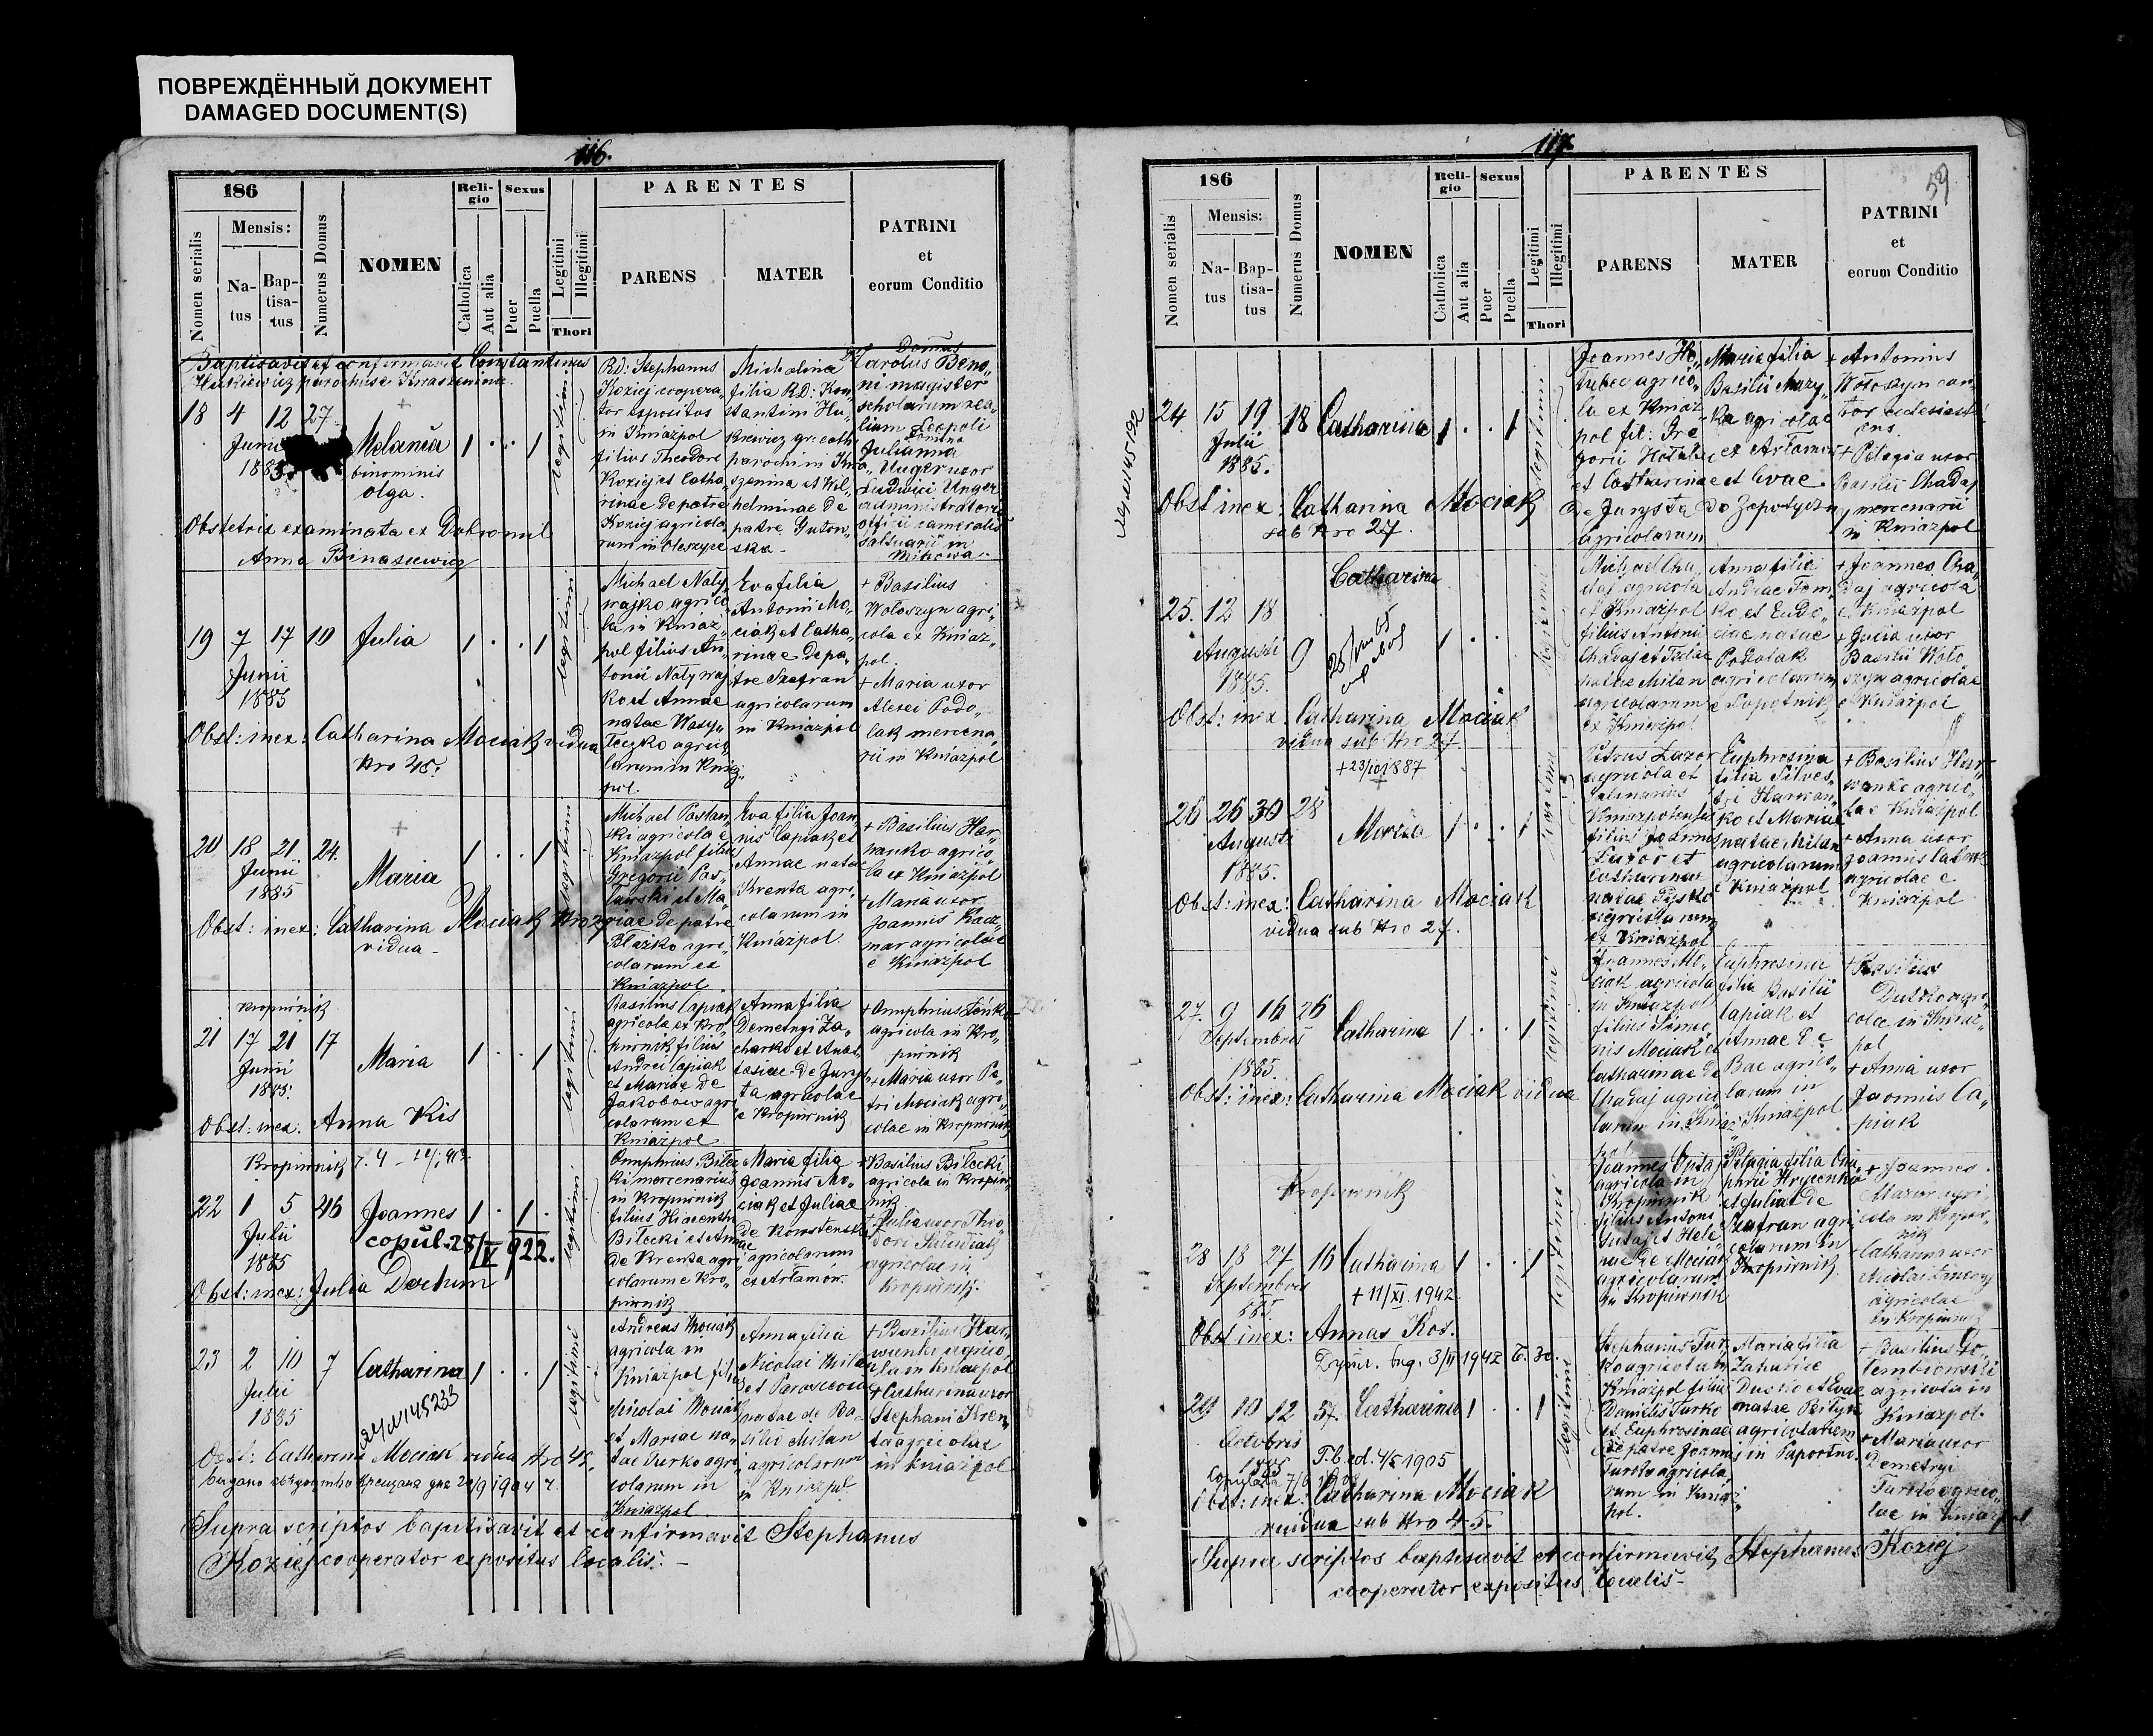 ПОВРЕЖДЁННЫЙ ДОКУМЕНТ
DAMAGED DOCUMENT(S)
116.
186
Mensis:
Nomen serialis
Na-
tus
Bap-
tisa-
tus
Numerus Domus
NOMEN
Reli-
gio
Catholica
Aut alia
Sexus
Puer
Puella
Legitimi
Illegitimi
Thori
PARENTES
PARENS
MATER
PATRINI
et
eorum Conditio
Baptisavit et confirmavit Constantinus
18 4 12 27
Junii
1885.
Melania
binominis
Olga.
legitimi
Rd: Stephanus
Koziej coopera-
tor expositus
in Kniazpol
filius Theodori
Koziej et Catha-
rinae de patre
Koziej agricola
rum in Oleszyce
Michalina
filia RD: Kon-
stantini Hu-
kiewicz gr: cath
parochi in Kra
szenina et Wil-
helminae de
patre Gutow-
ska -
Domus
Carolus Beno-
ni magister
scholarum rea-
lium Leopoli
Julianna
Unger uxor
Ludvici Unger
administratoris
officii cameralis
saltuarii in
Mikowa.
Obstetrix examinata ex Dobromil
Anna Binasiewicz
19 7 17 10 Julia
Junii
1885
legitimi
Michael Naly
wajko agrico
la in Kniaz-
pol filius An-
tonii Nalywaj
ko et Annae
natae Wasy-
leczko agrico
larum in Kniaz
pol.
Eva filia
Antonii Mo-
ciak et Catha-
rinae de pa-
tre Szafran
agricolarum
in Kniazpol
+ Basilius
Wołoszyn agri-
cola ex Kniaz-
pol.
+ Maria uxor
Alexei Podo-
lak mercena-
rii in Kniazpol
Obst: inex: Catharina Mociak vidua
Nro 45.
20 18 21 24.
Junii
1885
Maria
legitimi
Michael Pastan-
ski agricola e
Kniazpol filius
Gregorii Pas-
Tawski et Ma-
riae de patre
Błazko agri-
colarum ex
Kniazpol
Eva filia Joan-
nis Capiak et
Annae natae
Krenta agri-
colarum in
Kniazpol.
+ Basilius Har-
wanko agrico-
la ex Kniazpol
+ Maria uxor
Joannis Kacz-
mar agricolae
e Kniazpol
Obst: inex: Catharina Mociak Nro 27
vidua -
Kropiwnik
21 17 21 17
Junii
1885.
Maria
legitimi
Basilius Capiak
agricola ex Kro-
piwnik filius
Andrei Capiak
et Mariae de
Jakobow agri
colarum ex
Kniazpol
Anna filia
Demetryi Za-
charko et Anas-
tasiae de Jurys
ta agricolae
e Kropiwnik
+ Onuphrius Fenko
agricola in Kro-
piwnik
+ Maria uxor Pe-
tri Mociak agri-
colae in Kropiwnik
Obst: inex. Anna Kis
Kropiwnik
22 1 5 46 Joannes
Julii
1885
copul. 28/V 922.
legitimi
Onuphrius Bilec
ki mercenarius
in Kropiwnik
filius Hiacenthi
Bilecki et Annae
de Krenta agri
colarum e Kro-
piwnik
Maria filia
Joannis Mo-
ciak et Juliae
agricolarum
ex Arłamów.
+ Basilius Bilecki,
agricola in Kropiw-
nik
+ Julia uxor Theo
dori
agricolae in
Kropiwnik.
Obst: inex: Julia Dechum
23 2 10 7 Catharina
Julii
1885
legitimi
Andreas Mociak
agricola in
Kniazpol filius
Nicolai Mociak
et Mariae na-
tae Turko agri-
colarum in
Kniazpol
Anna filia
Nicolai Mila
et Parasceviae
natae de Ba-
silio Milan
agricolarum
in Kniazpol
+ Basilius Har-
wanko agrico-
la in Kniazpol
+ Catharina uxor
Stephani Kren-
ta agricolae
in Kniazpol
Obst: Catharina Mociak vidua Nro 45.
Supra scriptos baptisavit et confirmavit Stephanus
Koziej cooperator expositus localis. -
117
59
186
Mensis:
Nomen serialis
Na-
tus
Bap-
tisa-
tus
Numerus Domus
NOMEN
Reli-
gio
Catholica
Aut alia
Sexus
Puer
Puella
Legitimi
Illegitimi
Thori
PARENTES
PARENS
MATER
PATRINI
et
eorum Conditio
24 15 19 18 Catharina
Julii
1885.
legitimi
Joannes Ho-
Tubec agrico-
la ex Kniaz
pol fil: Gre
gorii
et Catharinae
de Jurysta
agricolarum
Maria filia
Basilii Muzy-
ka agricolae
ex Arłamow
et Evae
+ Antonius
Wołoszyn can-
tor ecclesiasti
cus.
+ Pelagia uxor
Basilii Chadaj
mercenarii
in Kniazpol
Obst inex: Catharina Mociak
sub Nro 27.
25. 12 18
Augusti 9
1885.
Catharina
Michael Cha-
daj agricola
ex Kniazpol
filius Antonii
Chadaj et Juliae
natae Milan
agricolarum
ex Kniazpol
Anna filia
Andreae Tom
ko et Eudo-
ciae natae
Podolak
agricolarum
e Sopotnik
+ Joannes Cha-
daj agricola
e Kniazpol
+ Julia uxor
Basilii Woło
szyn agricolae
e Kniazpol
Obst: inex: Catharina Mociak
vidua sub Nro 27
26 26 30 28
Augusti
1885.
Maria
Petrus Lazor
agricola et
salinarius
Kniazpolensis
Lazor et
Catharinae
natae Pysko
agricolarum
ex Kniazpol
Euphrosina
filia Silves-
tri Harwan-
ko et Mariae
natae Milan
agricolarum
e Kniazpol
+ Basilius Har-
wanko agrico-
la e Kniazpol
+ Anna uxor
Joannis
agricolae e
Kniazpol
Obst: inex: Catharina Mociak
vidua sub Nro 27.
27. 9 16 26
Septembris
1885
Catharina
legitimi
Joannes Mo-
ciak agricola
in Kniazpol
filius Simeo-
nis Mociak et
Catharinae de
Chadaj agrico-
larum in Kniaz
pol
Euphrosina
filia Basilii
Capiak et
Annae
Bac agrico-
larum in
Kniazpol
+ Basilius
Dusko agri-
cola in Kniaz-
pol
+ Anna uxor
Joannis Ca-
piak
Obst: inex: Catharina Mociak vidua
Kropiwnik
28 18 27 16 Catharina
Septembris
885
+ 11/XI. 1942.
legitimi
agricola in
Kropiwnik
filius Antoni
nae de Mociak
agricolarum
in Kropiwnik
Pelagia filia Onu-
phrii Hrycenko
et Julia de
Szafran agri
colarum in
Kropiwnik
+ Joannes
Mazur agri
cola in Kropiw-
nik
+ Catharina uxor
agricolae
in Kropiwnik
Obst inex: Annas Kos.
29 10 12 37. Catharina
Octobris
1885
T.b. ed. 4/X 1905
legitimi
Stephanus Tur
ko agricola in
Kniazpol filius
Danielis Turko
et Euphrosinae
de patre Joannis
Turko agricola
rum in Kniaz-
pol.
Maria filia
Zahariae
Dusko et Evae
natae
agricolarum
in Paportno.
+ Basilius
agricola in
Kniazpol.
+ Maria uxor
Demetryi
Turko agrico-
lae in Kniazpol
Obst: inex: Catharina Mociak
vidua sub Nro 45.
Supra scriptos baptisavit et confirmavit Stephanus Koziej
cooperator expositus localis -